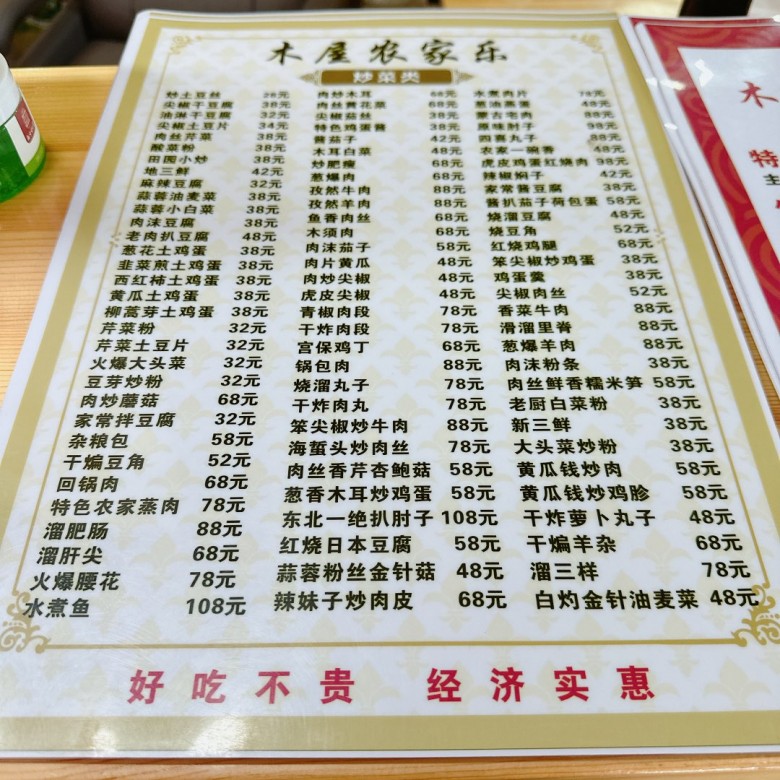 木屋农家乐
炒菜类
炒土豆丝 28元
尖椒干豆腐 38元
油淋干豆腐 32元
尖椒土豆片 34元
肉丝芹菜 38元
酸菜粉 38元
田园小炒 38元
地三鲜 42元
麻辣豆腐 32元
蒜蓉油麦菜 38元
蒜蓉小白菜 38元
肉沫豆腐 38元
老肉扒豆腐 48元
葱花土鸡蛋 38元
韭菜煎土鸡蛋 38元
西红柿土鸡蛋 38元
黄瓜土鸡蛋 38元
柳蒿芽土鸡蛋 38元
芹菜粉 32元
芹菜土豆片 32元
火爆大头菜 32元
豆芽炒粉 32元
肉炒蘑菇 68元
家常拌豆腐 32元
杂粮包 58元
干煸豆角 52元
回锅肉 68元
特色农家蒸肉 78元
溜肥肠 88元
溜肝尖 68元
火爆腰花 78元
水煮鱼 108元
肉炒木耳 68元
肉丝黄花菜 68元
尖椒茄丝 38元
特色鸡蛋酱 38元
酱茄子 42元
木耳白菜 48元
炒肥瘦 68元
葱爆肉 68元
孜然牛肉 88元
孜然羊肉 88元
鱼香肉丝 68元
木须肉 68元
肉沫茄子 58元
肉片黄瓜 48元
肉炒尖椒 48元
虎皮尖椒 48元
青椒肉段 78元
干炸肉段 78元
宫保鸡丁 68元
锅包肉 88元
烧溜丸子 78元
干炸肉丸 78元
笨尖椒炒牛肉 88元
海蜇头炒肉丝 78元
肉丝香芹杏鲍菇 58元
葱香木耳炒鸡蛋 58元
东北一绝扒肘子 108元
红烧日本豆腐 58元
蒜蓉粉丝金针菇 48元
辣妹子炒肉皮 68元
水煮肉片 78元
葱油蒸蛋 48元
蒙古宅肉 88元
原味肘子 98元
四喜丸子 88元
农家一碗香 48元
虎皮鸡蛋红烧肉 98元
辣椒焖子 42元
家常酱豆腐 38元
酱扒茄子荷包蛋 58元
烧溜豆腐 48元
烧豆角 52元
红烧鸡腿 68元
笨尖椒炒鸡蛋 38元
鸡蛋羹 38元
尖椒肉丝 52元
香菜牛肉 88元
滑溜里脊 88元
葱爆羊肉 88元
肉沫粉条 38元
肉丝鲜香糯米笋 58元
老厨白菜粉 38元
新三鲜 38元
大头菜炒粉 38元
黄瓜钱炒肉 58元
黄瓜钱炒鸡胗 58元
干炸萝卜丸子 48元
干煸羊杂 68元
溜三样 78元
白灼金针油麦菜 48元
好吃不贵 经济实惠
木
特
主